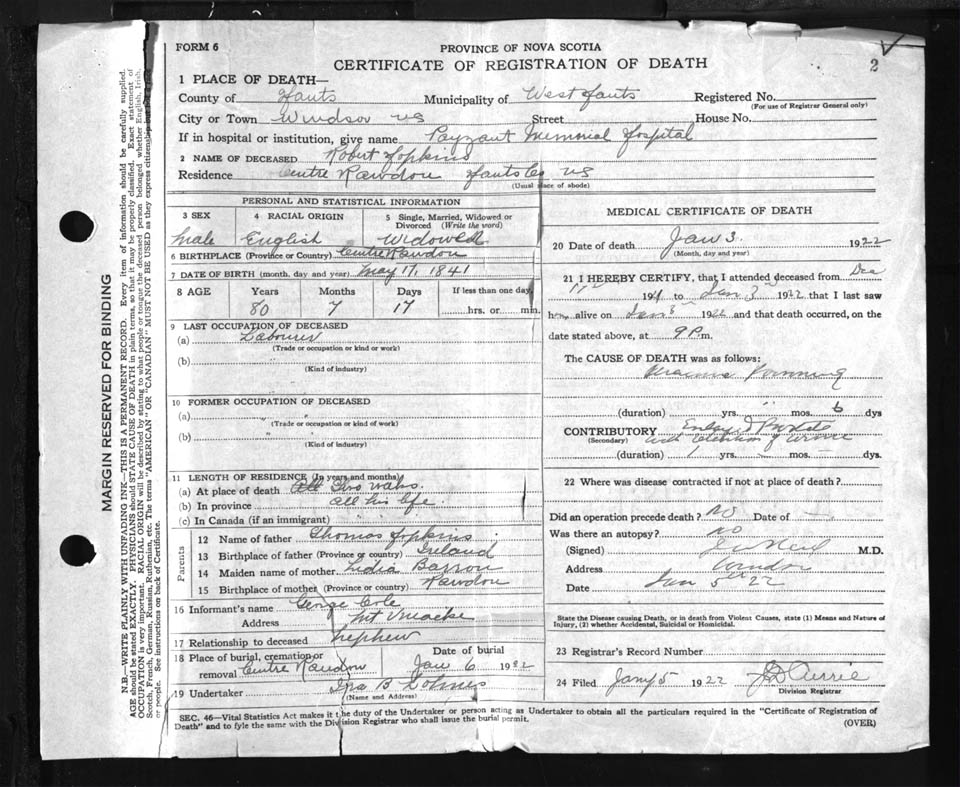 FORM 6
PROVINCE OF NOVA SCOTIA
CERTIFICATE OF REGISTRATION OF DEATH
2
1 PLACE OF DEATH—
County of Hants Municipality of West Hants Registered No.
(For use of Registrar General only)
City or Town Windsor NS Street House No.
If in hospital or institution, give name Payzant Memorial Hospital
2 NAME OF DECEASED Robert Hopkins
Residence Centre Rawdon Hants Co NS
(Usual place of abode)
PERSONAL AND STATISTICAL INFORMATION
3 SEX 4 RACIAL ORIGIN 5 Single, Married, Widowed or Divorced (Write the word)
Male English Widowed
6 BIRTHPLACE (Province or Country) Centre Rawdon
7 DATE OF BIRTH (month, day and year) May 17, 1841
8 AGE Years Months Days If less than one day
80 7 17 hrs. or min.
9 LAST OCCUPATION OF DECEASED
(a) Labourer
(Trade or occupation or kind or work)
(b)
(Kind of industry)
10 FORMER OCCUPATION OF DECEASED
(a) " "
(Trade or occupation or kind or work)
(b) "
(Kind of industry)
11 LENGTH OF RESIDENCE (In years and months)
(a) At place of death
(b) In province all his life
(c) In Canada (if an immigrant)
Parents
12 Name of father Thomas Hopkins
13 Birthplace of father (Province or country) Ireland
14 Maiden name of mother Lidia Barron
15 Birthplace of mother (Province or country) Rawdon
16 Informant's name George Cole
Address Mt Uniacke
17 Relationship to deceased nephew
18 Place of burial, cremation or removal Centre Rawdon
Date of burial Jan 6 1922
19 Undertaker Ira B
(Name and Address)
MEDICAL CERTIFICATE OF DEATH
20 Date of death Jan 3 1922
(Month, day and year)
21 I HEREBY CERTIFY, that I attended deceased from Dec
to Jan 3 1922 that I last saw
him alive on Jan 3 1922 and that death occurred, on the
date stated above, at 9 P.m.
The CAUSE OF DEATH was as follows:
(duration) yrs. mos. 6 dys
CONTRIBUTORY
(Secondary) with retention of urine
(duration) 1 yrs. mos. dys
22 Where was disease contracted if not at place of death?
Did an operation precede death? No Date of
Was there an autopsy? no
(Signed) M.D.
Address Windsor
Date Jan 5th 22
State the Disease causing Death, or in death from Violent Causes, state (1) Means and Nature of
Injury, (2) whether Accidental, Suicidal or Homicidal.
23 Registrar's Record Number
24 Filed Jany 5 1922
Division Registrar
SEC. 46—Vital Statistics Act makes it the duty of the Undertaker or person acting as Undertaker to obtain all the particulars required in the "Certificate of Registration of
Death" and to fyle the same with the Division Registrar who shall issue the burial permit.
(OVER)
MARGIN RESERVED FOR BINDING
N.B.—WRITE PLAINLY WITH UNFADING INK—THIS IS A PERMANENT RECORD. Every item of information should be carefully supplied.
AGE should be stated EXACTLY. PHYSICIANS should STATE CAUSE OF DEATH in plain terms, so that it may be properly classified. Exact statement of
OCCUPATION is very important. RACIAL ORIGIN will be described by stating to what people or tongue the deceased person belonged whether English, Irish,
Scotch, French, German, Russian, Ruthenian, etc. The terms "AMERICAN" OR "CANADIAN" MUST NOT BE USED as they express citizenship
or people. See instructions on back of Certificate.